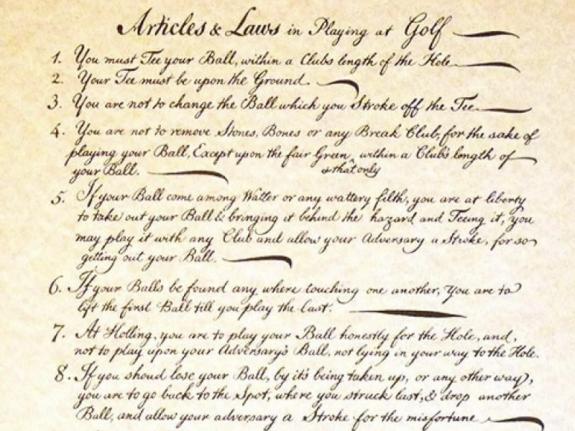 Articles & Laws in Playing at Golf
1. You must Tee your Ball, within a Clubs length of the Hole.
2. Your Tee must be upon the Ground.
3. You are not to change the Ball which you Stroke off the Tee.
4. You are not to remove Stones, Bones or any Break Club, for the sake of
playing your Ball, Except upon the fair Green, within a Club's length of
& that only
your Ball.
5. If your Ball come among Watter or any wattery filth, you are at liberty
to take out your Ball & bringing it behind the hazard and Teeing it, you
may play it with any Club and allow your Adversary a Stroke, for so
getting out your Ball.
6. If your Balls be found any where touching one another, You are to
lift the first Ball till you play the last.
7. At Holling, you are to play your Ball honestly for the Hole, and,
not to play upon your Adversary's Ball, not lying in your way to the Hole.
8. If you shoud lose your Ball, by it's being taken up, or any other way,
you are to go back to the Spot, where you struck last, & drop another
Ball, and allow your adversary a Stroke for the misfortune